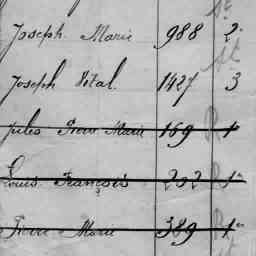 Joseph Marie 988 2
Joseph Vital. 1427 3
Jules Pierre Marie 169 1
Louis François 202 1
Pierre Marie 389 1